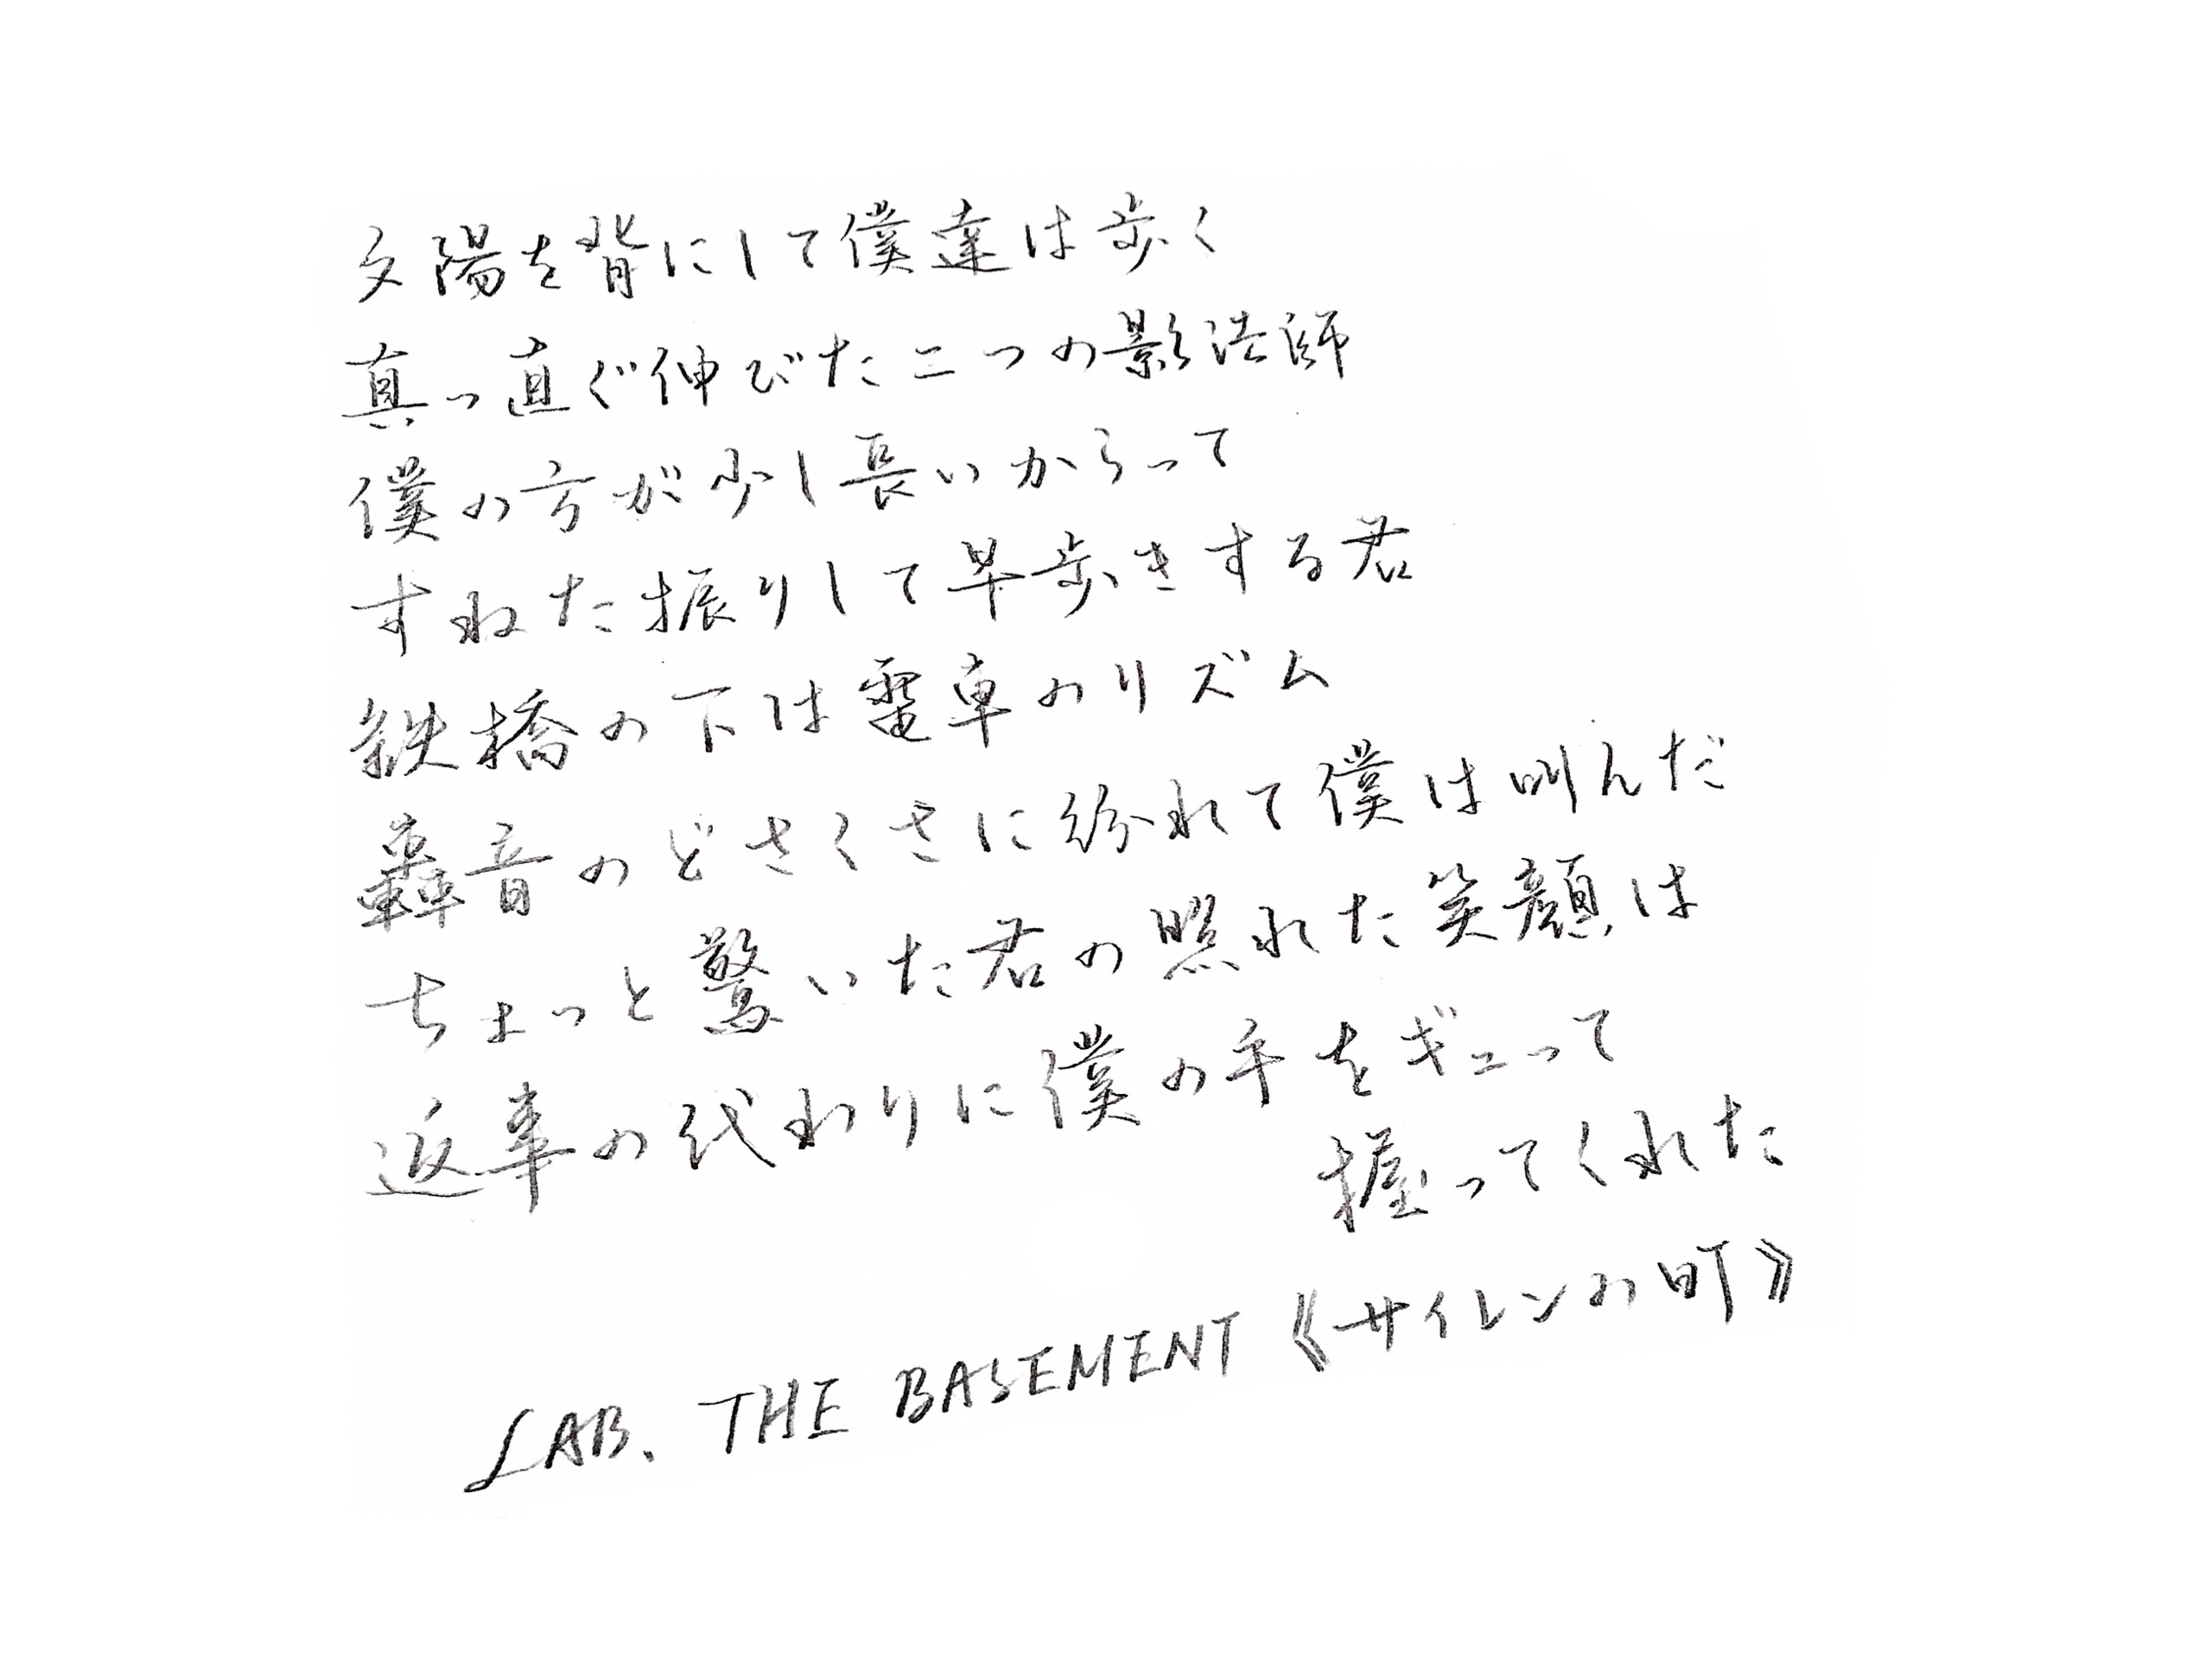 夕陽を背にして僕達は歩く
真っ直ぐ伸びた二つの影法師
僕の方が少し長いからって
すねた振りして早歩きする君
鉄橋の下は電車のリズム
轟音のどさくさに紛れて僕は叫んだ
ちょっと驚いた君の照れた笑顔は
返事の代わりに僕の手をギュって
握ってくれた
LAB. THE BASEMENT 《サイレンの町》